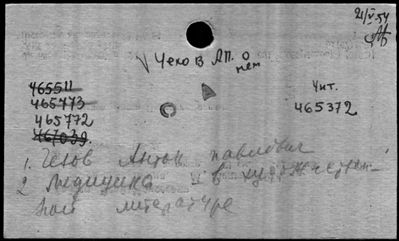 21/V.54
√ Чехов А.П. о
нем
465511
465773
465772
467039.
Чит.
465372
1. Чехов Антон Павлович
2 Медицина в художествен-
ной литературе